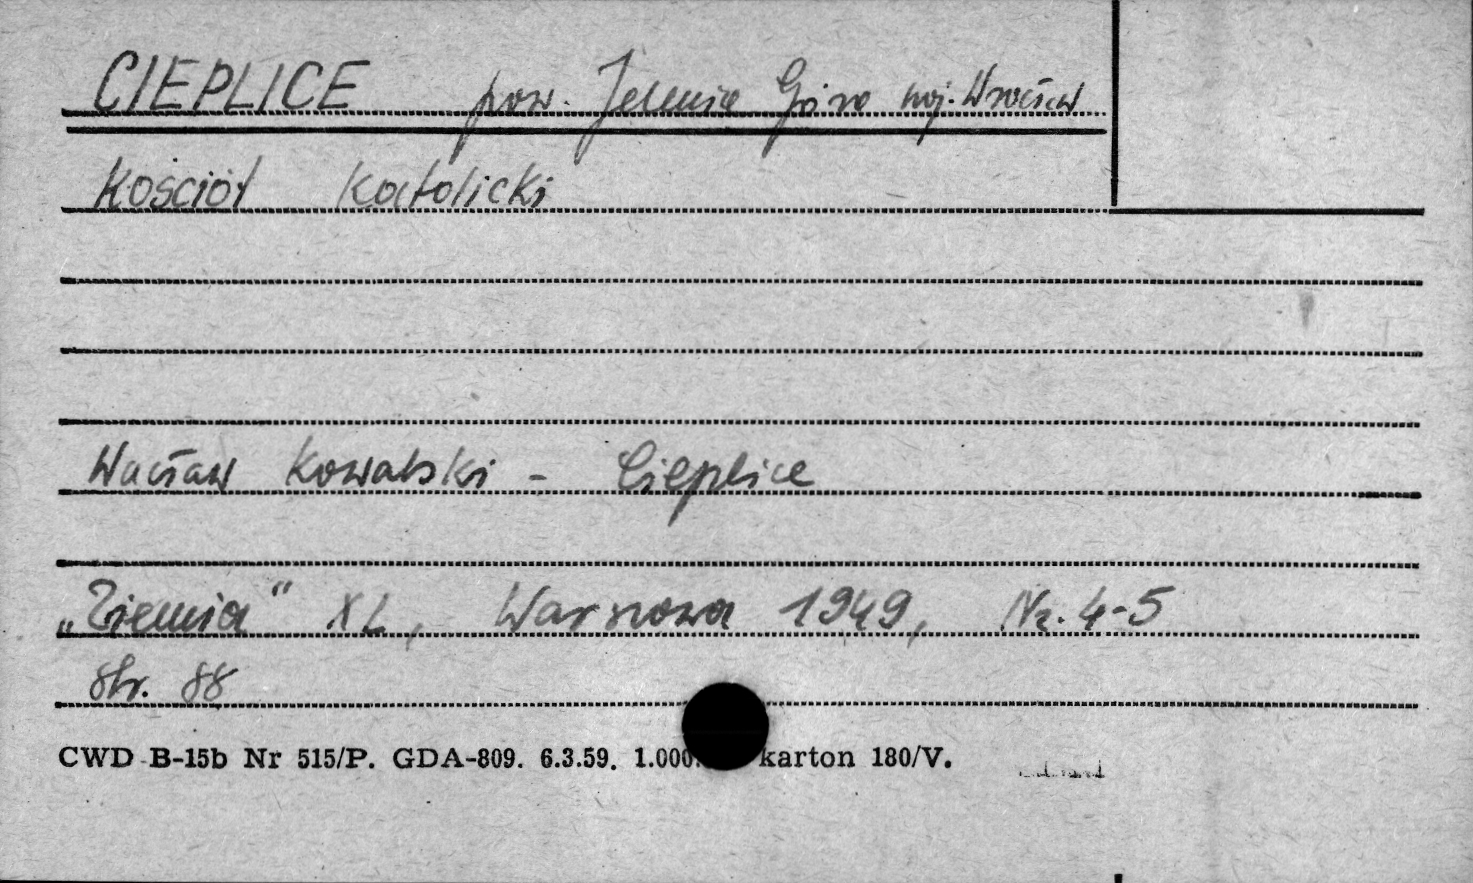 CIEPLICE pow. Jelenia Góra woj. Wrocław
Kościół Katolicki
Wacław Kowalski - Cieplice
„Ziemia" XL, Warszawa 1949, Nr. 4-5
str. 88
CWD B-15b Nr 515/P. GDA-809. 6.3.59. 1.000. karton 180/V.